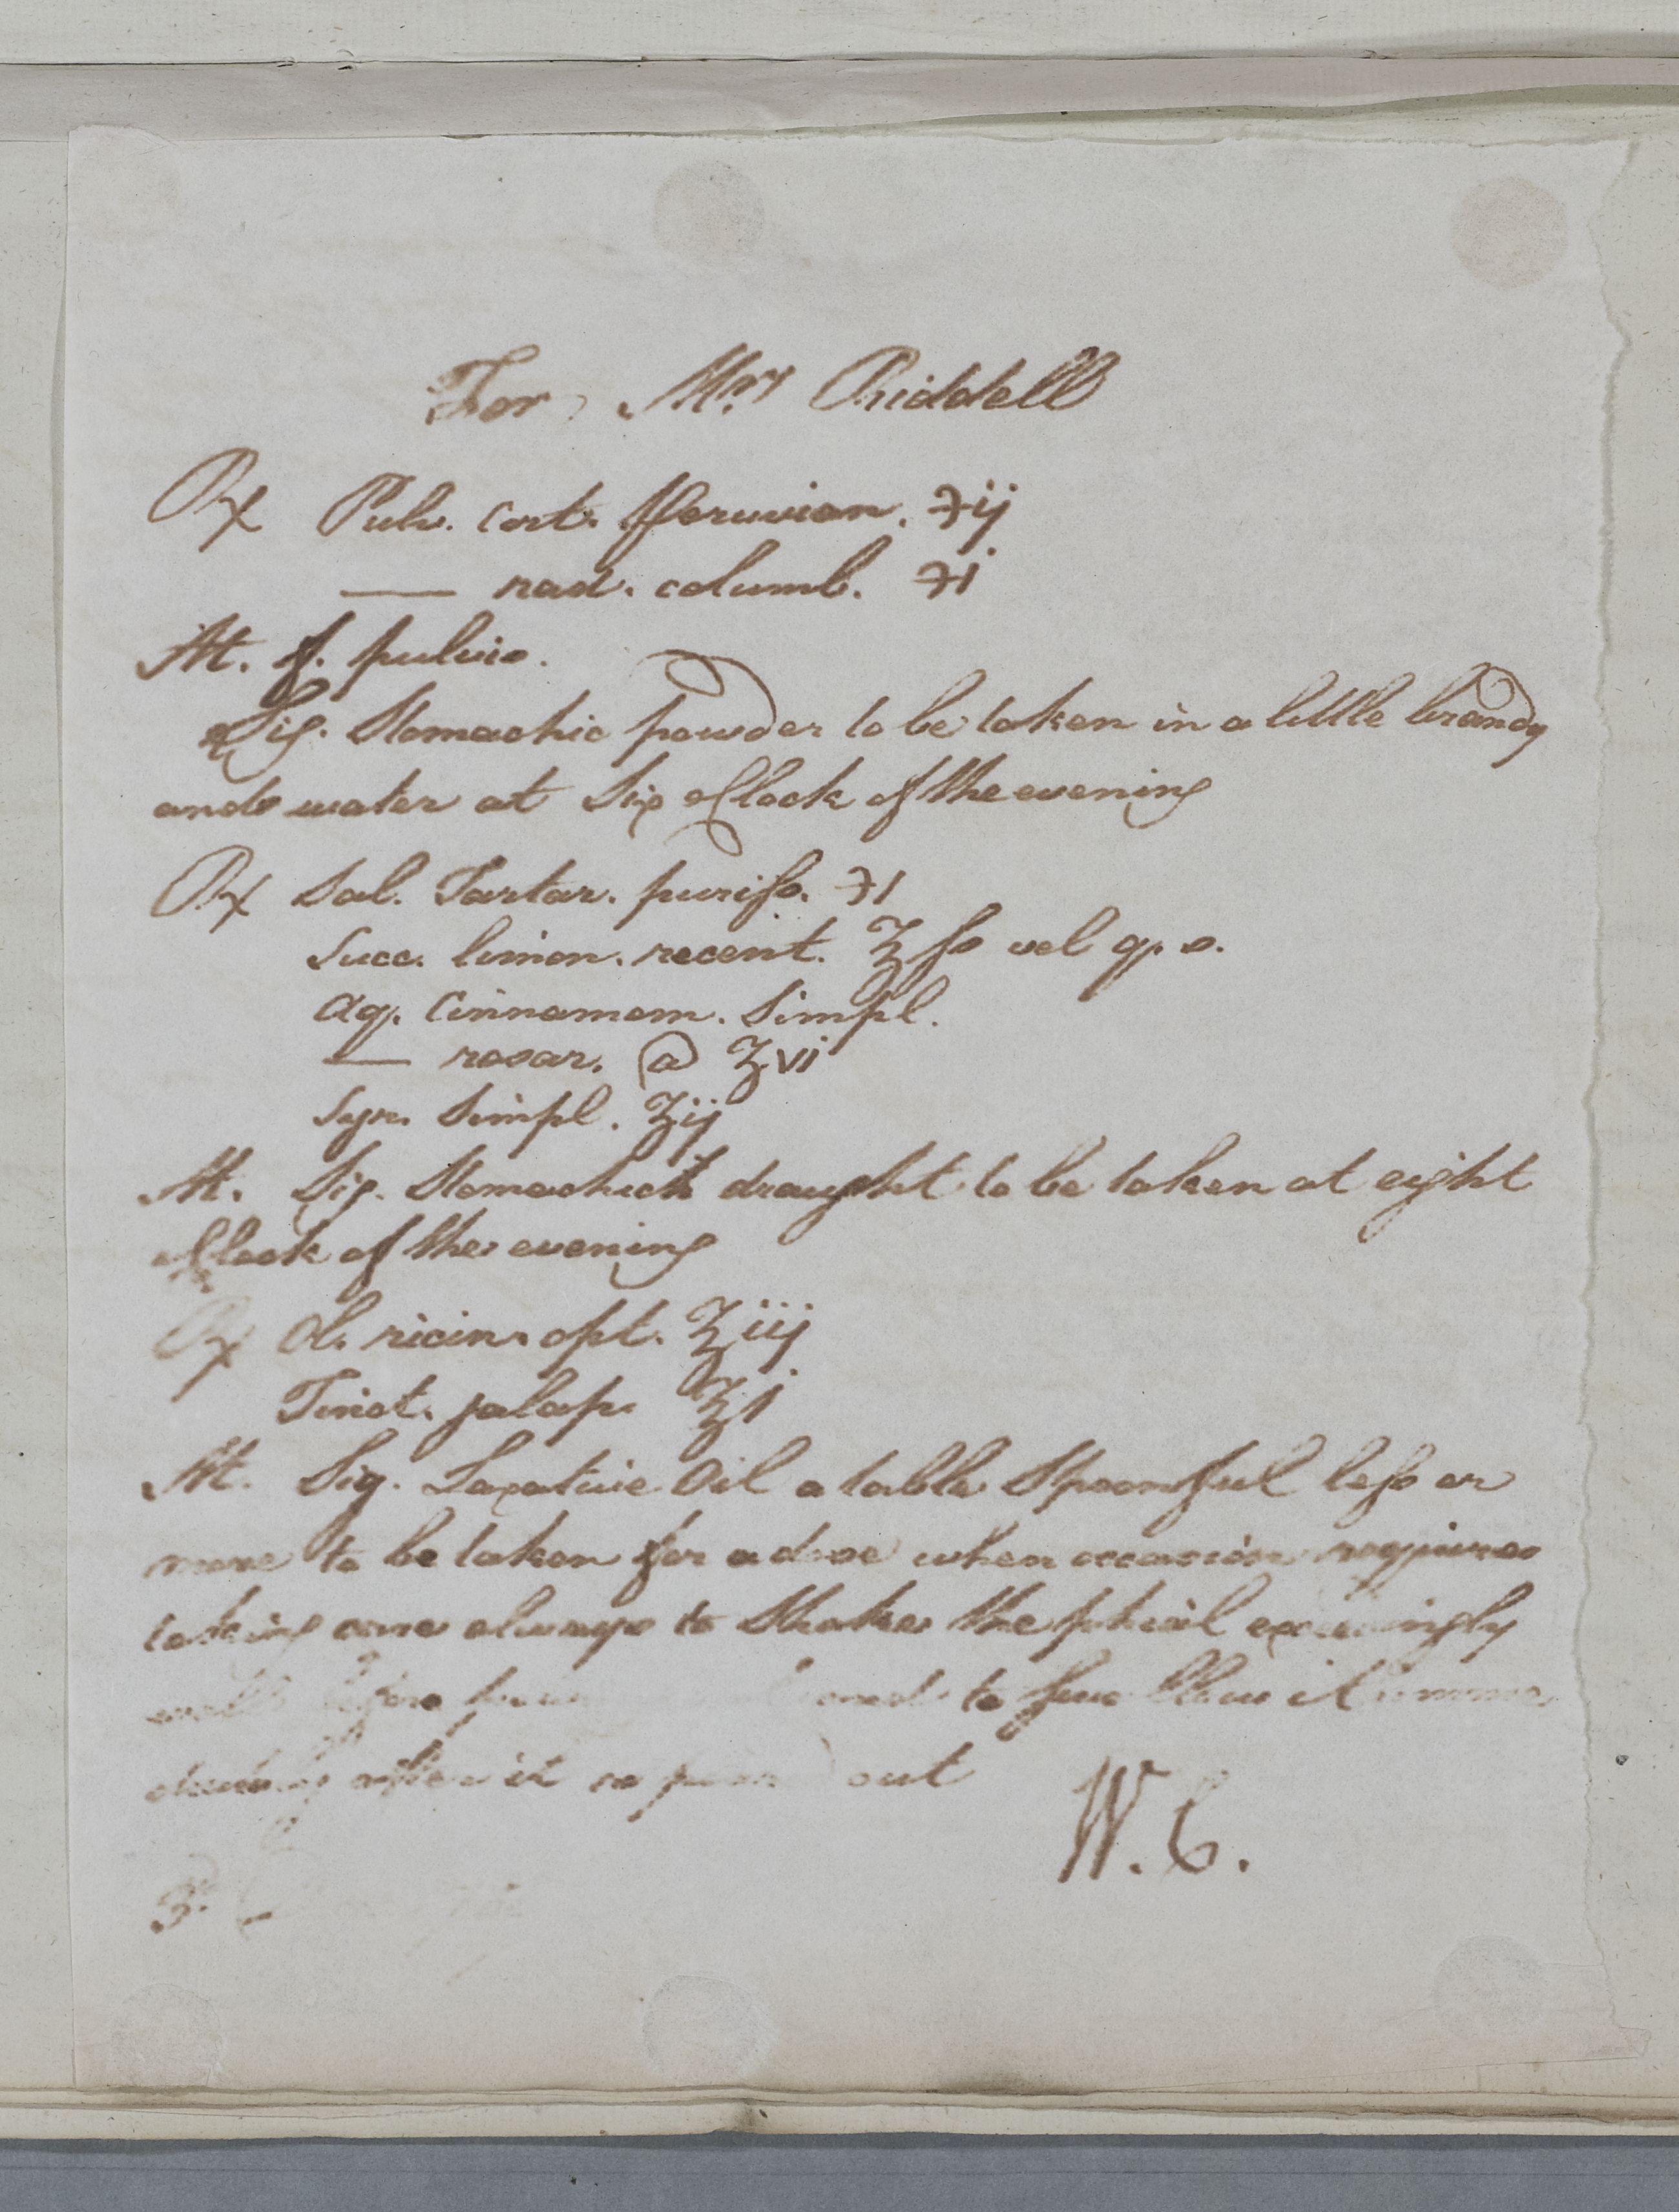 For Mrs Riddell
Rx Pulv. cort. Peruvian. ℈ij
—— rad. columb. ℈i
M. f. pulvis.
Sig. Stomachic powder to be taken in a little brandy
and water at Six oClock of the evening
Rx Sal. Tartar. puriss. ℈i
Succ. limon. recent. ℥ss vel q. s.
Aq. Cinnamom. Simpl.
—— rosar. @ ʒvi
Syr. Simpl. ʒij
M. Sig. Stomachick draught to be taken at eight
oClock of the evening
Rx Ol. ricin. opt. ℥iij
Tinct. jalap. ℥i
M. Sig. Laxative Oil a table Spoonful less or
more to be taken for a dose when occasion requires
taking care always to Shake the phial exceedingly
well before and to swallow it imme
after it is out
W. C.